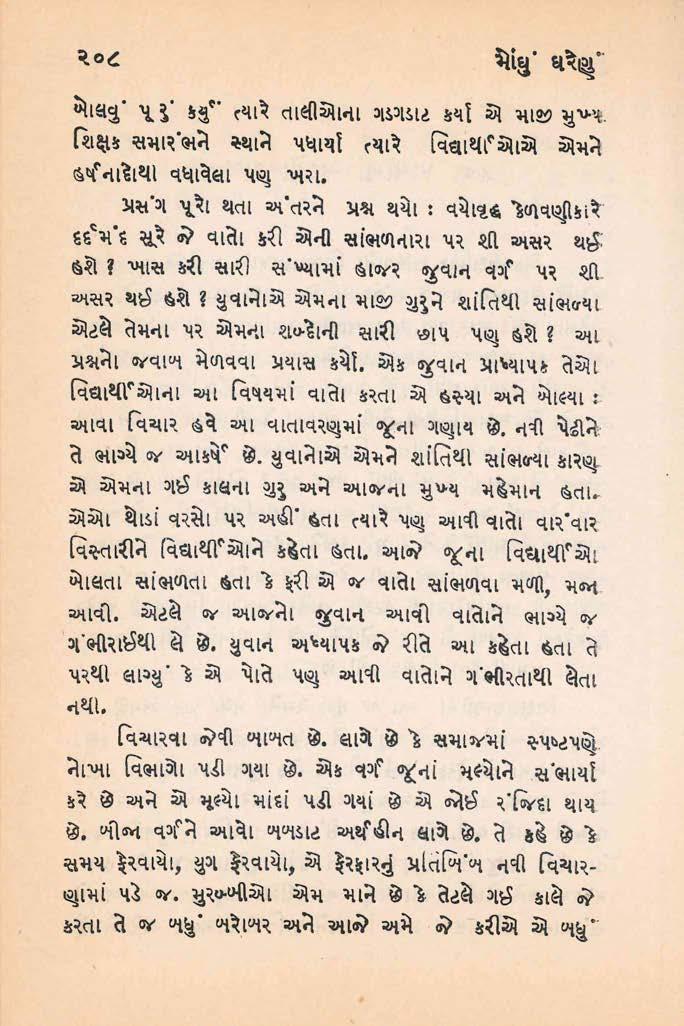 ૨૦૮ મોંઘું ઘરેણું
બોલવું પૂરું કર્યું ત્યારે તાલીઓના ગડગડાટ કર્યા એ માજી મુખ્ય
શિક્ષક સમારંભને સ્થાને પધાર્યા ત્યારે વિદ્યાર્થીઓએ એમને
હર્ષનાદોથી વધાવેલા પણ ખરા.
પ્રસંગ પૂરો થતા અંતરને પ્રશ્ન થયો : વયોવૃદ્ધ કેળવણીકારે
દર્દમંદ સૂરે જે વાતો કરી એની સાંભળનારા પર શી અસર થઈ
હશે ? ખાસ કરી સારી સંખ્યામાં હાજર જુવાન વર્ગ પર શી
અસર થઈ હશે ? યુવાનોએ એમના માજી ગુરુને શાંતિથી સાંભળ્યા
એટલે તેમના પર એમના શબ્દોની સારી છાપ પણ હશે ? આ
પ્રશ્નનો જવાબ મેળવવા પ્રયાસ કર્યો. એક જુવાન પ્રાધ્યાપક તેઓ
વિદ્યાર્થીઓના આ વિષયમાં વાતો કરતા એ હસ્યા અને બોલ્યા :
આવા વિચાર હવે આ વાતાવરણમાં જૂના ગણાય છે. નવી પેઢીને
તે ભાગ્યે જ આકર્ષે છે. યુવાનોએ એમને શાંતિથી સાંભળ્યા કારણ
એ એમના ગઈ કાલના ગુરુ અને આજના મુખ્ય મહેમાન હતા.
એઓ થોડાં વરસો પર અહીં હતા ત્યારે પણ આવી વાતો વારંવાર
વિસ્તારીને વિદ્યાર્થીઓને કહેતા હતા. આજે જૂના વિદ્યાર્થીઓ
બોલતા સાંભળતા હતા કે ફરી એ જ વાતો સાંભળવા મળી, મજા
આવી. એટલે જ આજનો જુવાન આવી વાતોને ભાગ્યે જ
ગંભીરાઈથી લે છે. યુવાન અધ્યાપક જે રીતે આ કહેતા હતા તે
પરથી લાગ્યું કે એ પોતે પણ આવી વાતોને ગંભીરતાથી લેતા
નથી.
વિચારવા જેવી બાબત છે. લાગે છે કે સમાજમાં સ્પષ્ટપણે
નોખા વિભાગો પડી ગયા છે. એક વર્ગ જૂનાં મૂલ્યોને સંભાર્યા
કરે છે અને એ મૂલ્યો માંદાં પડી ગયાં છે એ જોઈ રંજિદા થાય
છે. બીજા વર્ગને આવો બબડાટ અર્થહીન લાગે છે. તે કહે છે કે
સમય ફેરવાયો, યુગ ફેરવાયો, એ ફેરફારનું પ્રતિબિંબ નવી વિચાર-
ણામાં પડે જ. મુરબ્બીઓ એમ માને છે કે તેટલે ગઈ કાલે જે
કરતા તે જ બધું બરોબર અને આજે અમે જે કરીએ એ બધું